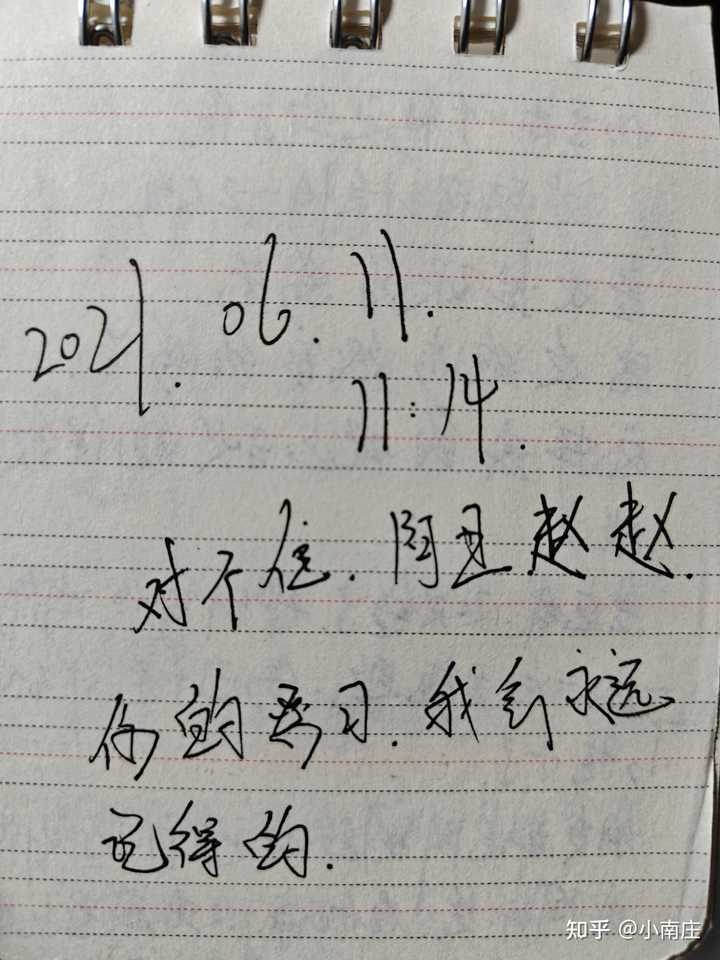 2021. 06. 11.
11:14.
对不. 赵赵.
你的习. 我会永远
记得的.
知乎 @小南庄